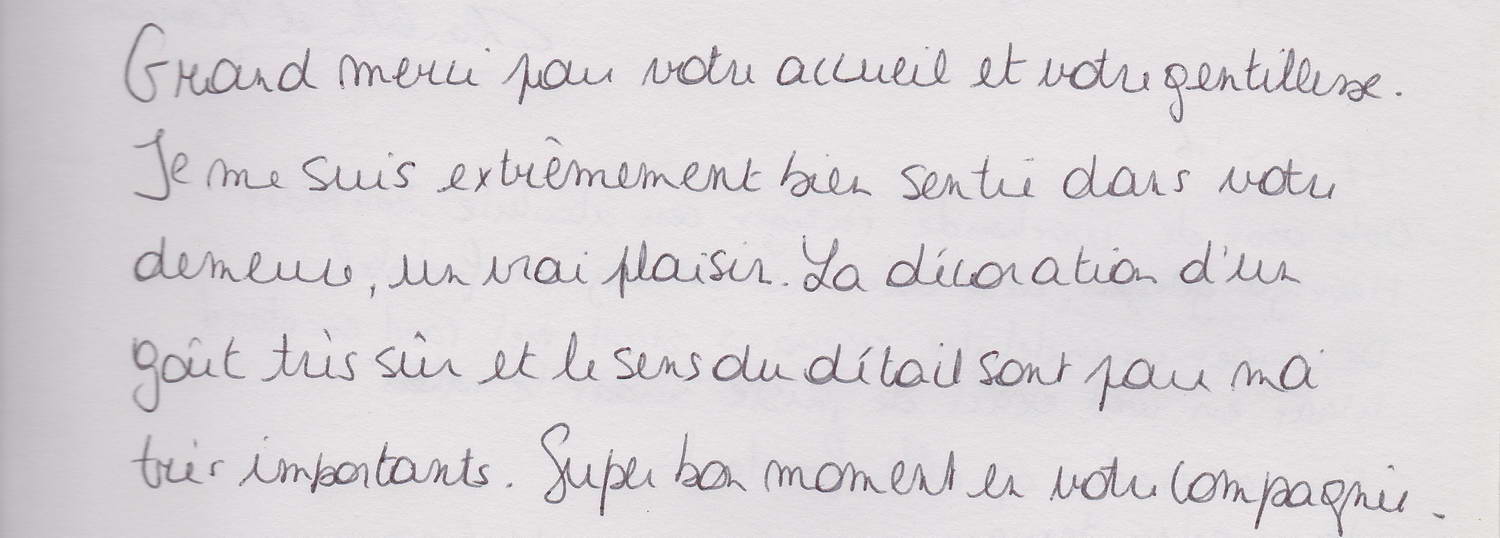 Grand merci pour votre accueil et votre gentillesse.
Je me suis extrêmement bien sentie dans votre
demeure, un vrai plaisir. La décoration d'un
goût très sûr et le sens du détail sont pour moi
très importants. Super bon moment en votre compagnie.